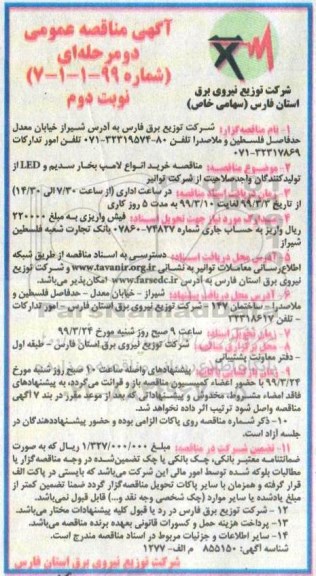 آگهی مناقصه عمومی
دومرحله‌ای
(شماره ۹۹-۱-۱-۷)
نوبت دوم
شرکت توزیع نیروی برق
استان فارس (سهامی خاص)
۱- نام مناقصه‌گزار: شرکت توزیع برق فارس به آدرس شیراز خیابان معدل
حدفاصل فلسطین و ملاصدرا تلفن ۸۰-۳۲۳۱۹۵۷۴-۰۷۱ تلفن امور تدارکات
۰۷۱-۳۲۳۱۷۸۶۹
۲- موضوع مناقصه: مناقصه خرید انواع لامپ بخار سدیم و LED از
تولیدکنندگان واجدصلاحیت از شرکت توانیر
۳- زمان دریافت اسناد مناقصه: در ساعت اداری (از ساعت ۷/۳۰ الی ۱۴/۳۰)
از تاریخ ۹۹/۳/۳ لغایت ۹۹/۳/۱۰ به مدت ۵ روز کاری
۴- مدارک مورد نیاز جهت تحویل اسناد: فیش واریزی به مبلغ ۲۲۰۰۰۰
ریال واریز به حساب جاری شماره ۷۴۸۲۷-۰۷۸۶ بانک تجارت شعبه فلسطین
شیراز
۵- آدرس محل دریافت اسناد: دسترسی به اسناد مناقصه از طریق شبکه
اطلاع‌رسانی معاملات توانیر به نشانی www.tavanir.org.ir و شرکت توزیع
نیروی برق استان فارس به آدرس www.farsedc.ir امکان‌پذیر می‌باشد.
۶- آدرس محل دریافت پیشنهاد: شیراز - خیابان معدل - حدفاصل فلسطین و
ملاصدرا - ساختمان ۲۳۷ شرکت توزیع نیروی برق استان فارس - امور تدارکات
- تلفن ۳۲۳۱۸۶۲۷
۷- زمان تحویل اسناد: ساعت ۹ صبح روز شنبه مورخ ۹۹/۳/۲۴
۸- محل برگزاری مناقصه: شرکت توزیع نیروی برق استان فارس - طبقه اول
- دفتر معاونت پشتیبانی
۹- زمان بازگشایی پاکات: پیشنهادهای واصله ساعت ۱۰ صبح روز شنبه مورخ
۹۹/۳/۲۴ با حضور اعضاء کمیسیون مناقصه باز و قرائت می‌گردد، به پیشنهادهای
فاقد امضاء، مشروط، مخدوش و پیشنهاداتی که بعد از موعد مقرر در بند ۷ آگهی
مناقصه واصل شود ترتیب اثر داده نخواهد شد.
۱۰- ذکر شماره مناقصه روی پاکات الزامی بوده و حضور پیشنهاددهندگان در
جلسه آزاد است.
۱۱- تضمین شرکت در مناقصه: مبلغ ۱/۳۲۷/۰۰۰/۰۰۰ ریال که به صورت
ضمانتنامه معتبر بانکی، چک بانکی یا چک تضمین‌شده در وجه مناقصه‌گزار یا
مطالبات بلوکه شده توسط امور مالی این شرکت می‌باشد که بایستی در پاکت الف
قرار گرفته و همزمان با سایر پاکات تحویل مناقصه‌گزار گردد ضمنا تضمین کمتر از
مبلغ یادشده یا سایر موارد (چک شخصی وجه نقد و...) قابل قبول نمی‌باشد.
۱۲- شرکت توزیع برق فارس در رد یا قبول کلیه پیشنهادات مختار می‌باشد.
۱۳- پرداخت هزینه حمل و کسورات قانونی بعهده برنده مناقصه می‌باشد.
۱۴- سایر اطلاعات و جزئیات مربوط در اسناد مناقصه مندرج است.
شناسه آگهی: ۸۵۵۱۵۰ م الف- ۱۲۷۷
شرکت توزیع نیروی برق استان فارس